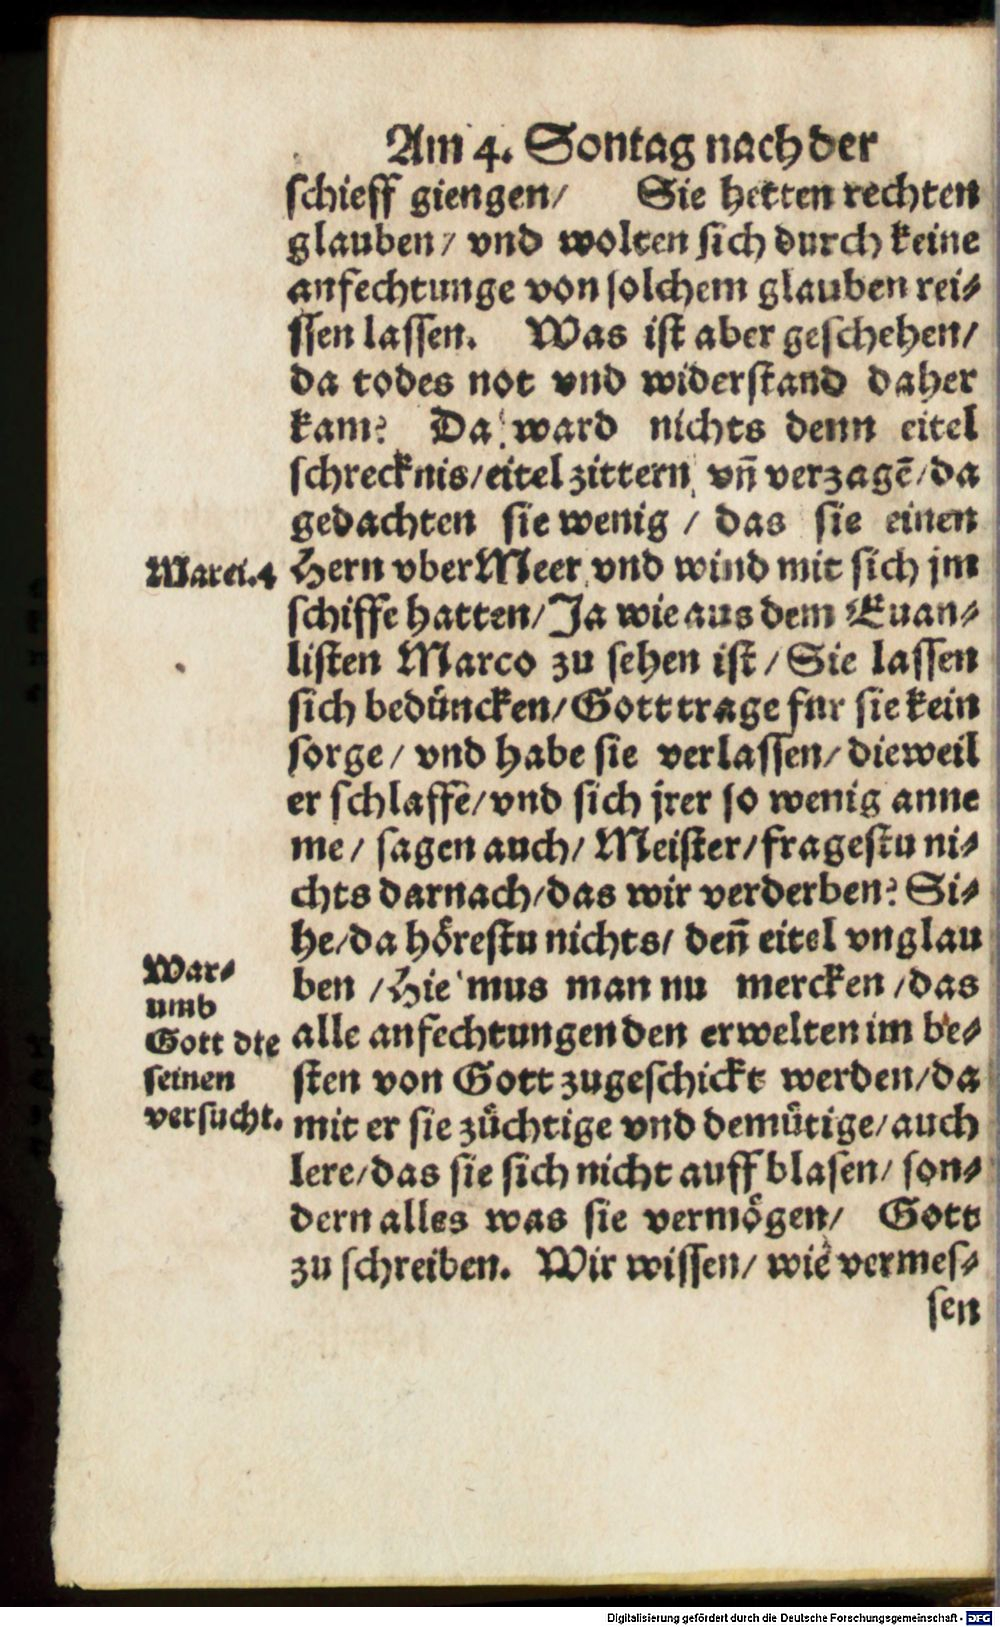 Am 4. Sontag nach der
schieff giengen/ Sie hetten rechten
glauben/ vnd wolten sich durch keine
anfechtunge von solchem glauben rei⸗
ssen lassen. Was ist aber geschehen/
da todes not vnd widerstand daher
kam? Da ward nichts denn eitel
schrecknis/eitel zittern vñ verzagẽ/da
gedachten sie wenig / das sie einen
Marci.4
Hern vber Meer vnd wind mit sich jm
schiffe hatten/Ja wie aus dem Euan⸗
listen Marco zu sehen ist/Sie lassen
sich bedüncken/Gott trage fur sie kein
sorge/ vnd habe sie verlassen/dieweil
er schlaffe/vnd sich jrer so wenig anne
me/ sagen auch/ Meister/fragestu ni⸗
chts darnach/das wir verderben? Si⸗
he/da hörestu nichts/ deñ eitel vnglau
War⸗
umb
Gott die
seinen
versucht.
ben /Hie mus man nu mercken/das
alle anfechtungen den erwelten im be⸗
sten von Gott zugeschickt werden/da
mit er sie züchtige vnd demütige/auch
lere/das sie sich nicht auff blasen/ son⸗
dern alles was sie vermögen/ Gott
zu schreiben. Wir wissen/ wie vermes⸗
sen
Digitalisierung gefördert durch die Deutsche Forschungsgemeinschaft - DFG